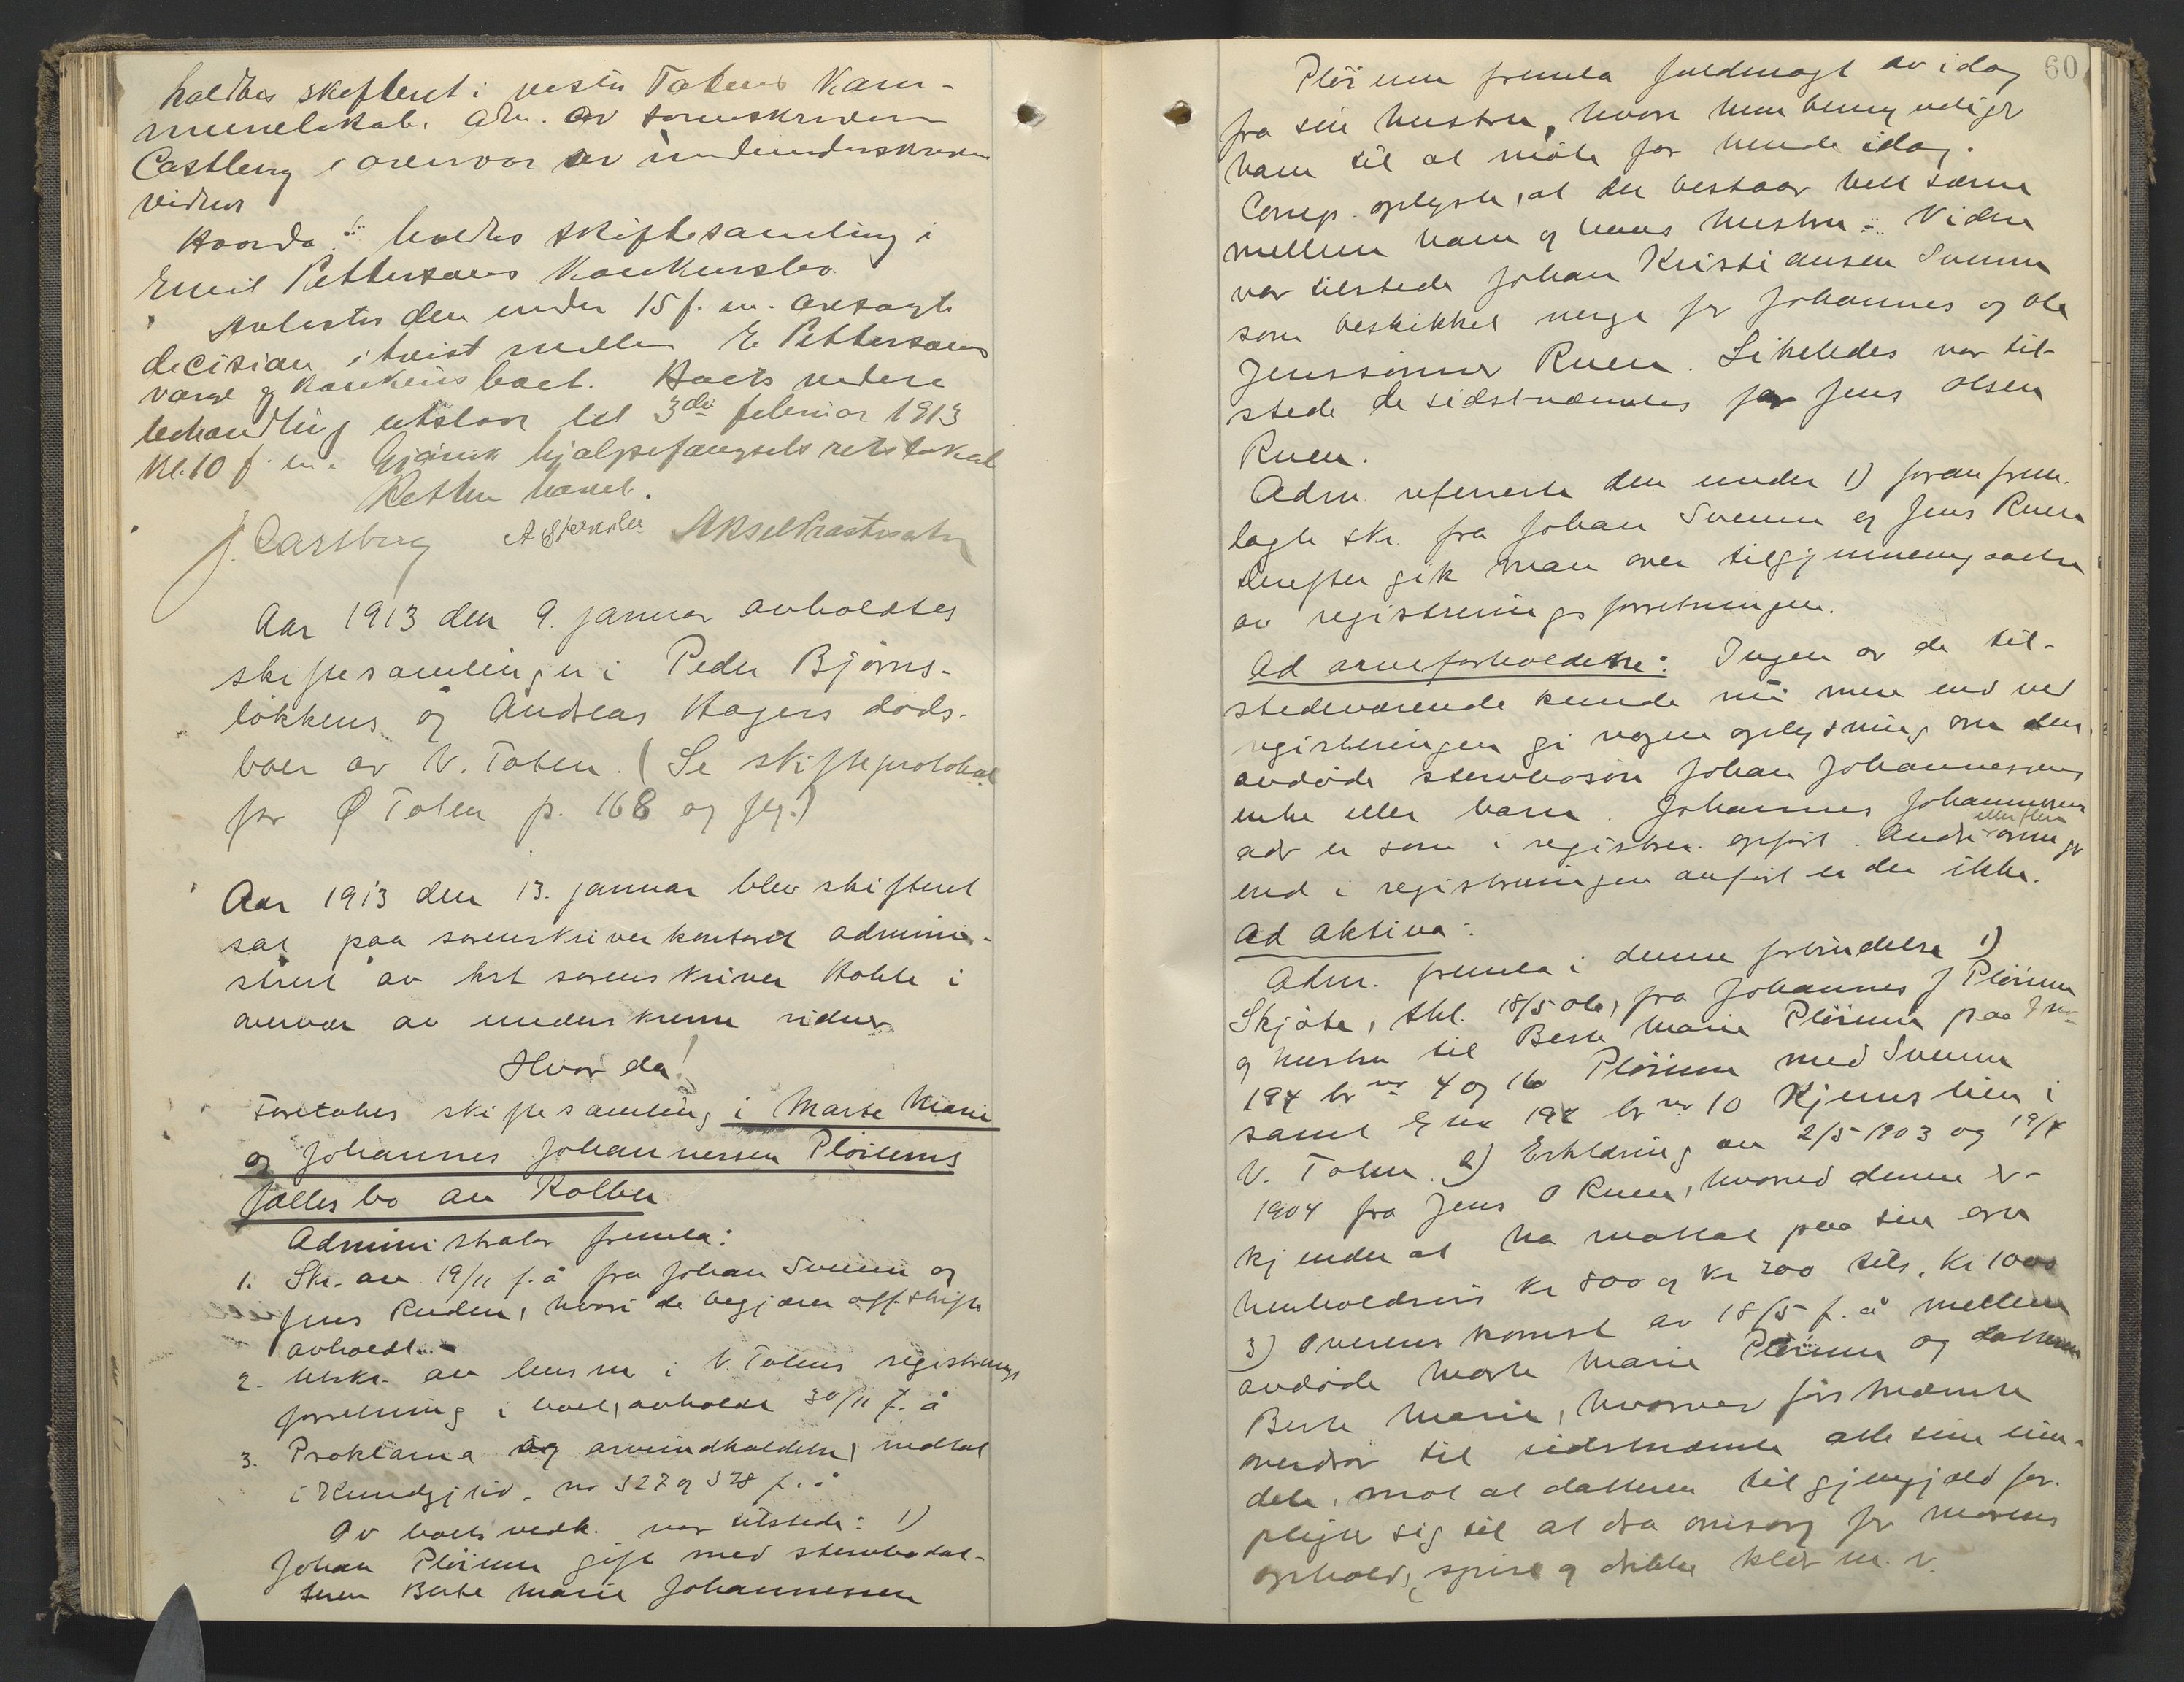 holdtes skifteret i vestre Totens Kom-
munelokale. Adm. av sorenskriver
Castberg i overvær av
vidner
Hvorda: holdtes skiftesamling i
Emil Pettersens Konkursbo
Avlastes den under 15 f. m. avsagte
decision i tvist mellem E. Pettersens
værge og konkursboet. Boets videre
behandling utstaar til 3die februar 1913
kl. 10 f. m. Gjøvik hjælpefængsels retslokale
Retten hævet.
J. Castberg Aksel
Aar 1913 den 9. januar avholdtes
skiftesamlinger i Peder Bjørns-
løkkens og Andreas Hagers døds-
boer av V. Toten. (Se skifteprotokol
for Ø Toten p. 168 og flg.)
Aar 1913 den 13. januar blev skifteret
sat paa sorenskriverkontoret admini-
streret av kst sorenskriver Hohle i
overvær av underskrevne vidner
Hvor da!
Foretokes skiftesamling i Marte Marie
og Johannes Johannessen Pløiums
fælles bo av Kolbu
Administrator fremla:
1. Skr. av 19/11 f. å fra Johan Svenn og
Jens Ruden, hvori de begjærer off. skifte
avholdt.
2. Utskr. av lensm i V. Totens registrerings
forretning i boet, avholdt 30/11 f. å
3. Proklama og arveindkaldelse, indtat
i Kundgj tid. nr 527 og 528 f. å
Av boets vedk. var tilstede: 1)
Johan Pløium gift med stervbodat-
teren Berte Marie Johannessen
60
Pløium fremla fuldmagt av idag
fra sin hustru, hvori hun bemyndiger
ham til at møte for hende idag.
Comp. oplyste, at der bestaar helt særeie
mellem ham og hans hustru. Videre
var tilstede Johan Kristiansen Svenn
som beskikket verge for Johannes og Ole
Jenssønner Ruen. Likeledes var til-
stede de sidstnævntes far Jens Olsen
Ruen.
Adm. refererte den under 1) foran frem-
lagte skr. fra Johan Svenn og Jens Ruen
Derefter gik man over til gjennemgaaelse
av registreringsforretningen.
Ad arveforholdene: Ingen av de til-
stedeværende kunde nu mere end ved
registreringen gi nogen oplysning om den
avdøde stervbosøn Johan Johannessens
enke eller barn. Johannes Johannessens
adr er som i registrer. opført. Andre eller flere arvinger
end i registreringen anført er der ikke.
Ad aktiva:
Adm. fremla i denne forbindelse 1)
Skjøte, thl. 18/5 01, fra Johannes J Pløium
og hustru til Berte Marie Pløium paa Gnr
194 br nr 4 og 16 Pløium med Svenn
samt Gnr 192 br nr 10 Kjernslien i
V. Toten. 2) Erklæring av 2/5 1903 og 19/4
1904 fra Jens O Ruen, hvorved denne er-
kjender at ha mottat paa sin arv
henholdsvis kr 800 og kr 200 tils. kr 1000
3) Overenskomst av 18/5 f. å mellem
avdøde Marte Marie Pløium og datteren
Berte Marie, hvorved førstnævnte
overdrar til sidstnævnte alle sine eien-
dele, mot at datteren til gjengjæld for-
pligter sig til at dra omsorg for morens
ophold, spise og drikke klær m. v.